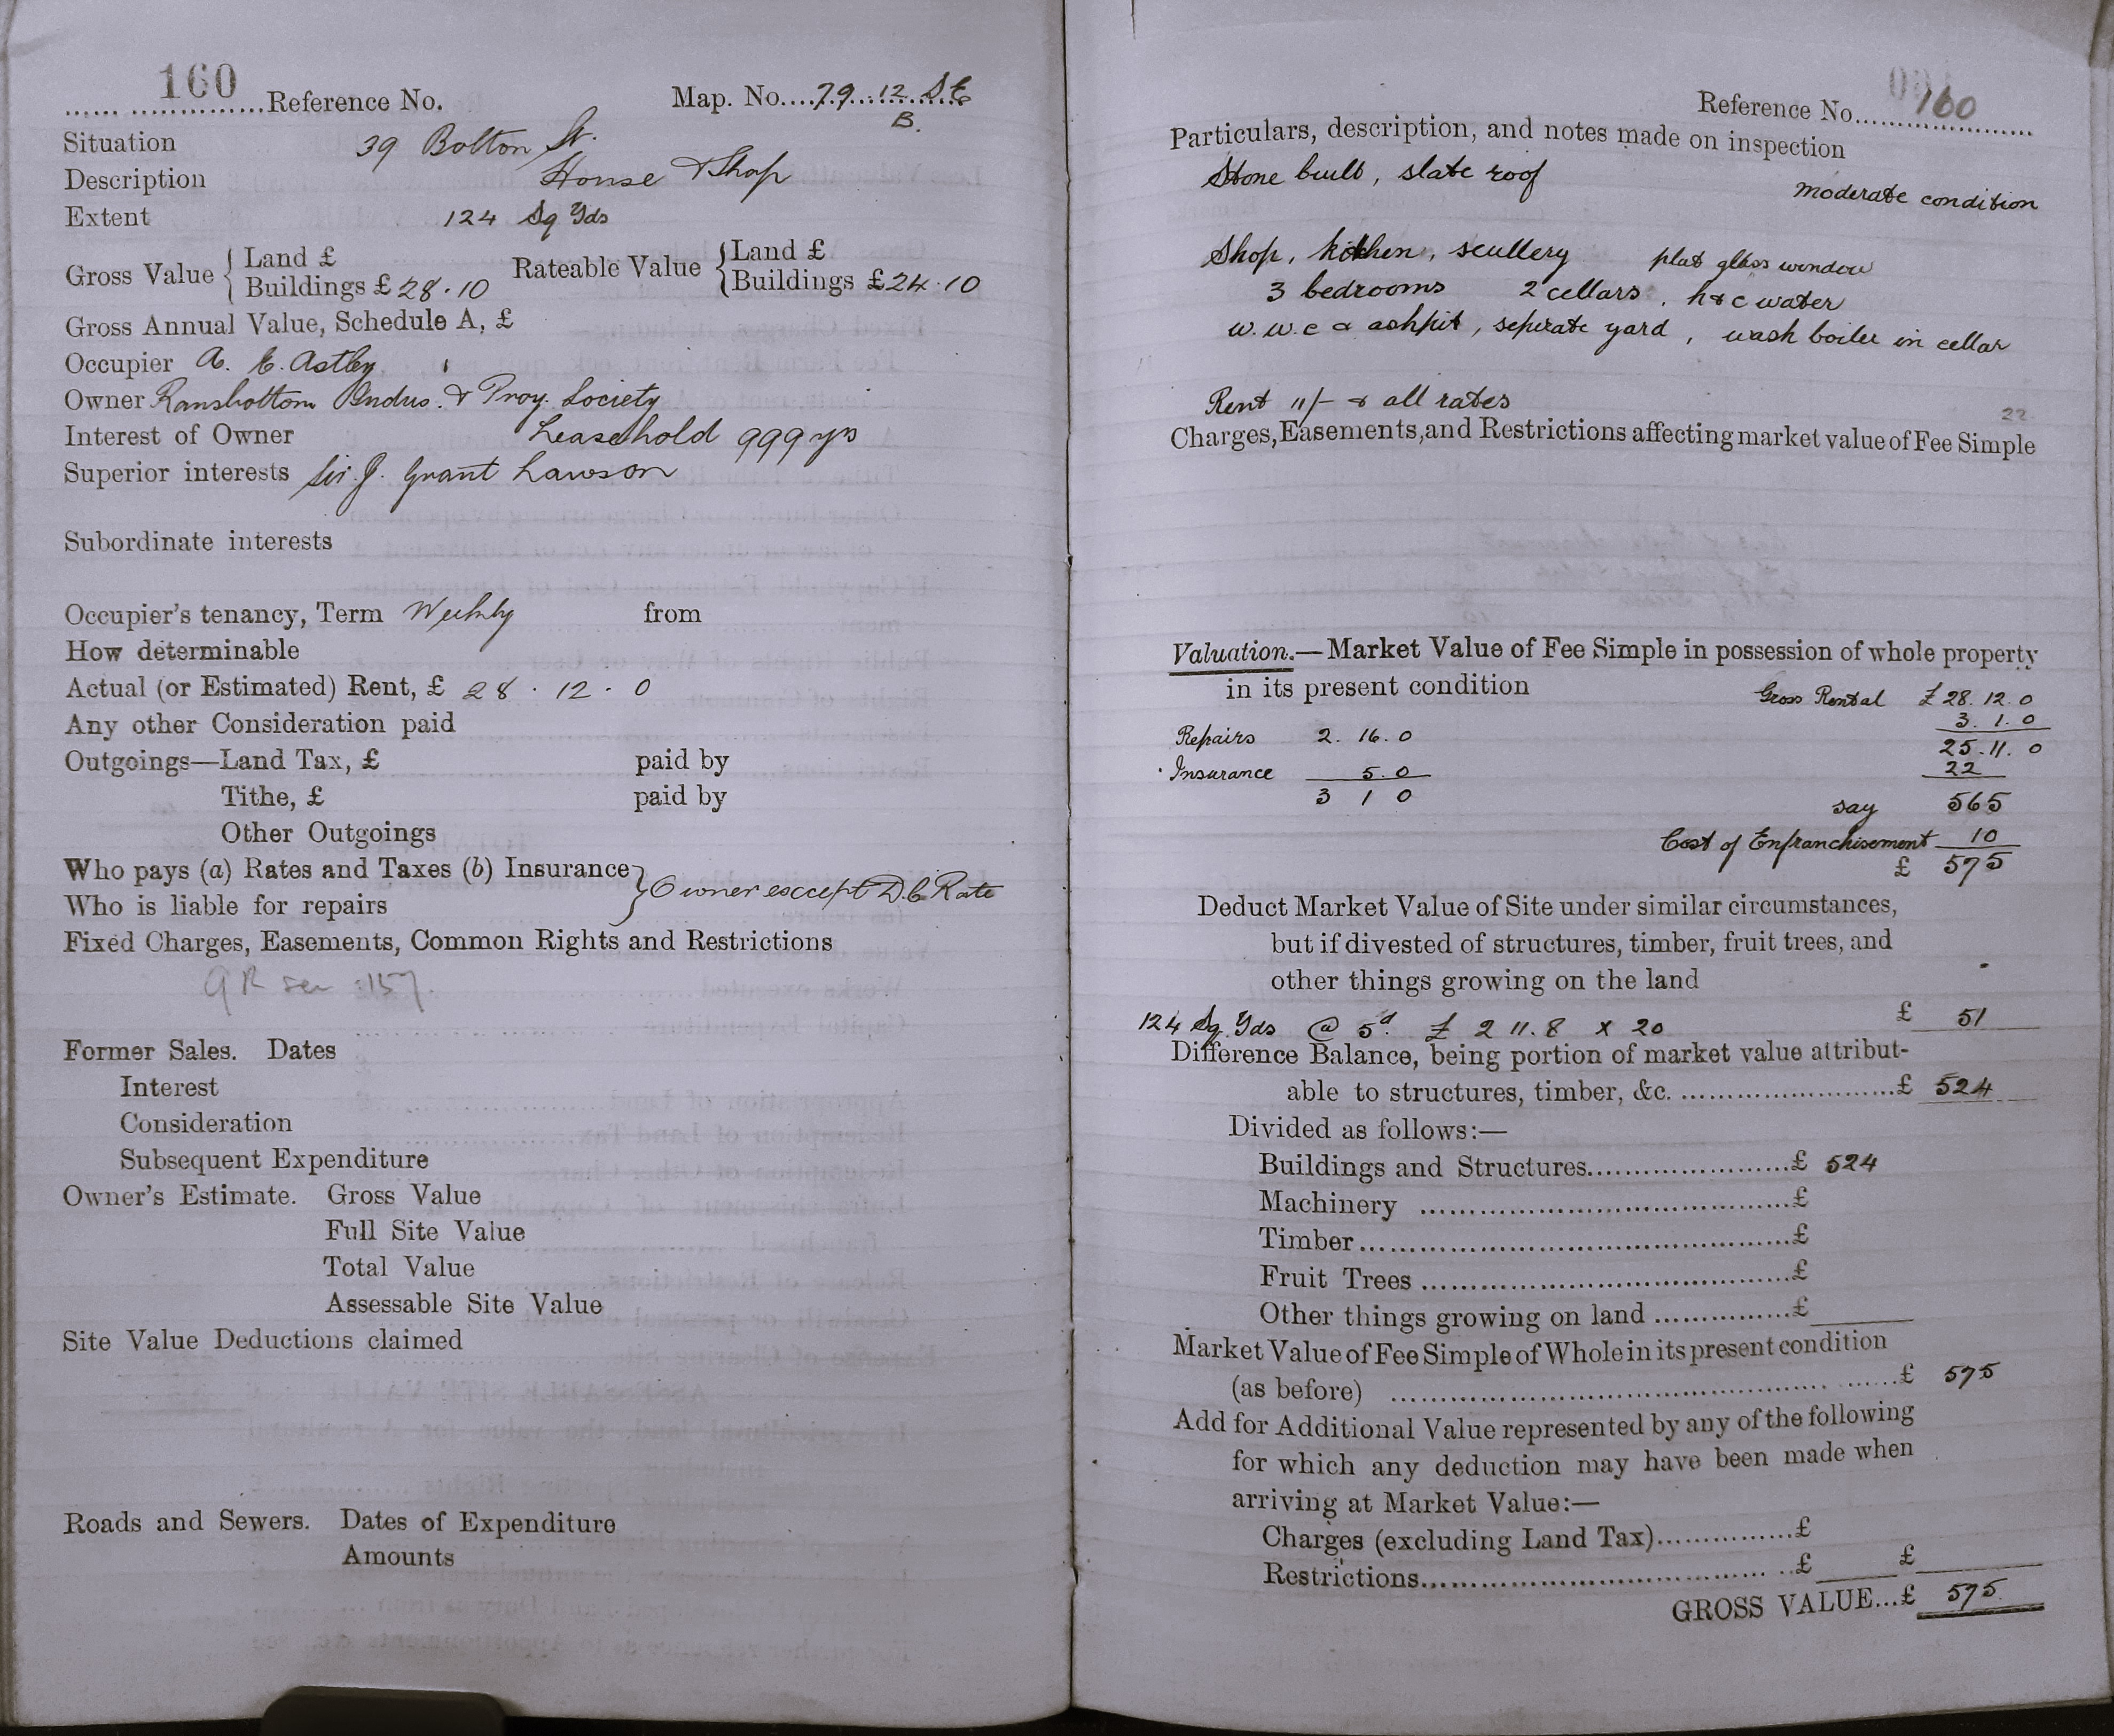 160 Reference No. Map. No. 79.12 SE
B.
Situation 39 Bolton St.
Description House & Shop
Extent 124 Sq Yds
Gross Value { Land £ Rateable Value { Land £
Buildings £28.10 Buildings £24.10
Gross Annual Value, Schedule A, £
Occupier A. E. Astley
Owner Ramsbottom Indus. & Prov. Society
Interest of Owner Leasehold 999 yrs
Superior interests Sir J. Grant Lawson
Subordinate interests
Occupier's tenancy, Term Weekly from
How determinable
Actual (or Estimated) Rent, £ 28.12.0
Any other Consideration paid
Outgoings—Land Tax, £ paid by
Tithe, £ paid by
Other Outgoings
Who pays (a) Rates and Taxes (b) Insurance
Who is liable for repairs } Owner except D.C. Rate
Fixed Charges, Easements, Common Rights and Restrictions
G R see 157.
Former Sales. Dates
Interest
Consideration
Subsequent Expenditure
Owner's Estimate. Gross Value
Full Site Value
Total Value
Assessable Site Value
Site Value Deductions claimed
Roads and Sewers. Dates of Expenditure
Amounts
Reference No. 160
Particulars, description, and notes made on inspection
Stone built, slate roof
moderate condition
Shop, kitchen, scullery plat glass window
3 bedrooms 2 cellars, h & c water
w.w.c & ashpit, seperate yard, wash boiler in cellar
Rent 11/- & all rates
22
Charges, Easements, and Restrictions affecting market value of Fee Simple
Valuation.—Market Value of Fee Simple in possession of whole property
in its present condition Gross Rental £28.12.0
3.1.0
Repairs 2.16.0 25.11.0
Insurance 5.0 22
3 1 0
say 565
Cost of Enfranchisement 10
£ 575
Deduct Market Value of Site under similar circumstances,
but if divested of structures, timber, fruit trees, and
other things growing on the land
124 Sq. Yds @ 5d. £ 2 11.8 x 20 £ 51
Difference Balance, being portion of market value attribut-
able to structures, timber, &c. £ 524
Divided as follows:—
Buildings and Structures £ 524
Machinery £
Timber £
Fruit Trees £
Other things growing on land £
Market Value of Fee Simple of Whole in its present condition
(as before) £ 575
Add for Additional Value represented by any of the following
for which any deduction may have been made when
arriving at Market Value:—
Charges (excluding Land Tax) £
Restrictions £ £
GROSS VALUE...£ 575